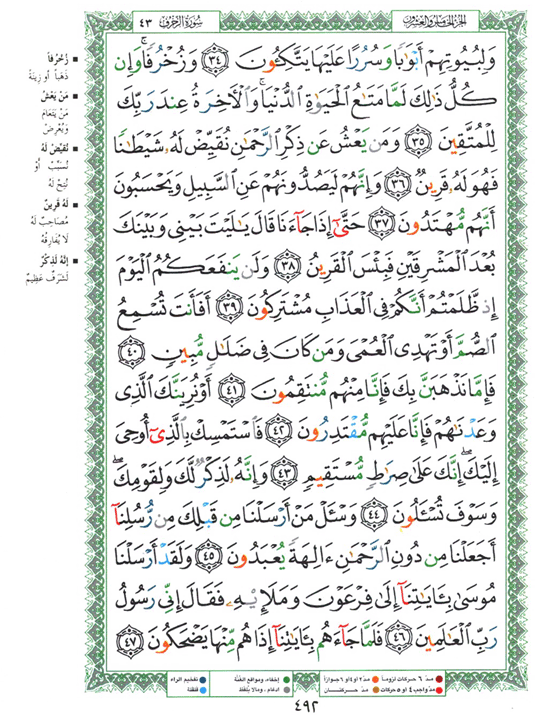 سُورَةُ الزُّخْرُفِ ٤٣
الجزء الخامس والعشرون
وَلِبُيُوتِهِمْ أَبْوَٰبًا وَسُرُرًا عَلَيْهَا يَتَّكِـُٔونَ ٣٤ وَزُخْرُفًا ۚ وَإِن
كُلُّ ذَٰلِكَ لَمَّا مَتَـٰعُ ٱلْحَيَوٰةِ ٱلدُّنْيَا ۚ وَٱلْـَٔاخِرَةُ عِندَ رَبِّكَ
لِلْمُتَّقِينَ ٣٥ وَمَن يَعْشُ عَن ذِكْرِ ٱلرَّحْمَـٰنِ نُقَيِّضْ لَهُۥ شَيْطَـٰنًا
فَهُوَ لَهُۥ قَرِينٌ ٣٦ وَإِنَّهُمْ لَيَصُدُّونَهُمْ عَنِ ٱلسَّبِيلِ وَيَحْسَبُونَ
أَنَّهُم مُّهْتَدُونَ ٣٧ حَتَّىٰٓ إِذَا جَآءَنَا قَالَ يَـٰلَيْتَ بَيْنِى وَبَيْنَكَ
بُعْدَ ٱلْمَشْرِقَيْنِ فَبِئْسَ ٱلْقَرِينُ ٣٨ وَلَن يَنفَعَكُمُ ٱلْيَوْمَ
إِذ ظَّلَمْتُمْ أَنَّكُمْ فِى ٱلْعَذَابِ مُشْتَرِكُونَ ٣٩ أَفَأَنتَ تُسْمِعُ
ٱلصُّمَّ أَوْ تَهْدِى ٱلْعُمْىَ وَمَن كَانَ فِى ضَلَـٰلٍ مُّبِينٍ ٤٠
فَإِمَّا نَذْهَبَنَّ بِكَ فَإِنَّا مِنْهُم مُّنتَقِمُونَ ٤١ أَوْ نُرِيَنَّكَ ٱلَّذِى
وَعَدْنَـٰهُمْ فَإِنَّا عَلَيْهِم مُّقْتَدِرُونَ ٤٢ فَٱسْتَمْسِكْ بِٱلَّذِىٓ أُوحِىَ
إِلَيْكَ ۖ إِنَّكَ عَلَىٰ صِرَٰطٍ مُّسْتَقِيمٍ ٤٣ وَإِنَّهُۥ لَذِكْرٌ لَّكَ وَلِقَوْمِكَ ۖ
وَسَوْفَ تُسْـَٔلُونَ ٤٤ وَسْـَٔلْ مَنْ أَرْسَلْنَا مِن قَبْلِكَ مِن رُّسُلِنَآ
أَجَعَلْنَا مِن دُونِ ٱلرَّحْمَـٰنِ ءَالِهَةً يُعْبَدُونَ ٤٥ وَلَقَدْ أَرْسَلْنَا
مُوسَىٰ بِـَٔايَـٰتِنَآ إِلَىٰ فِرْعَوْنَ وَمَلَإِي۟هِۦ فَقَالَ إِنِّى رَسُولُ
رَبِّ ٱلْعَـٰلَمِينَ ٤٦ فَلَمَّا جَآءَهُم بِـَٔايَـٰتِنَآ إِذَا هُم مِّنْهَا يَضْحَكُونَ ٤٧
■ زُخْرُفاً
ذَهَباً أو زِينَةً
■ مَنْ يَعْشُ
مَنْ يَتَعَامَ
وَيُعْرِضْ
■ نُقَيِّضْ لَهُ
نُسَبِّبْ أَوْ
نُتِحْ لَهُ
■ لَهُ قَرِينٌ
مُصَاحِبٌ لَهُ
لَا يُفَارِقُهُ
■ إِنَّهُ لَذِكْرٌ
لَشَرَفٌ عَظِيمٌ
مدّ ٦ حركات لزوماً مدّ ٢ أو ٤ أو ٦ جوازاً
مدّ واجب ٤ أو ٥ حركات مدّ حركتان
إخفاء، ومواقع الغُنَّة
ادغام، ومالا يُلفَظ
تفخيم الراء
قلقلة
٤٩٢